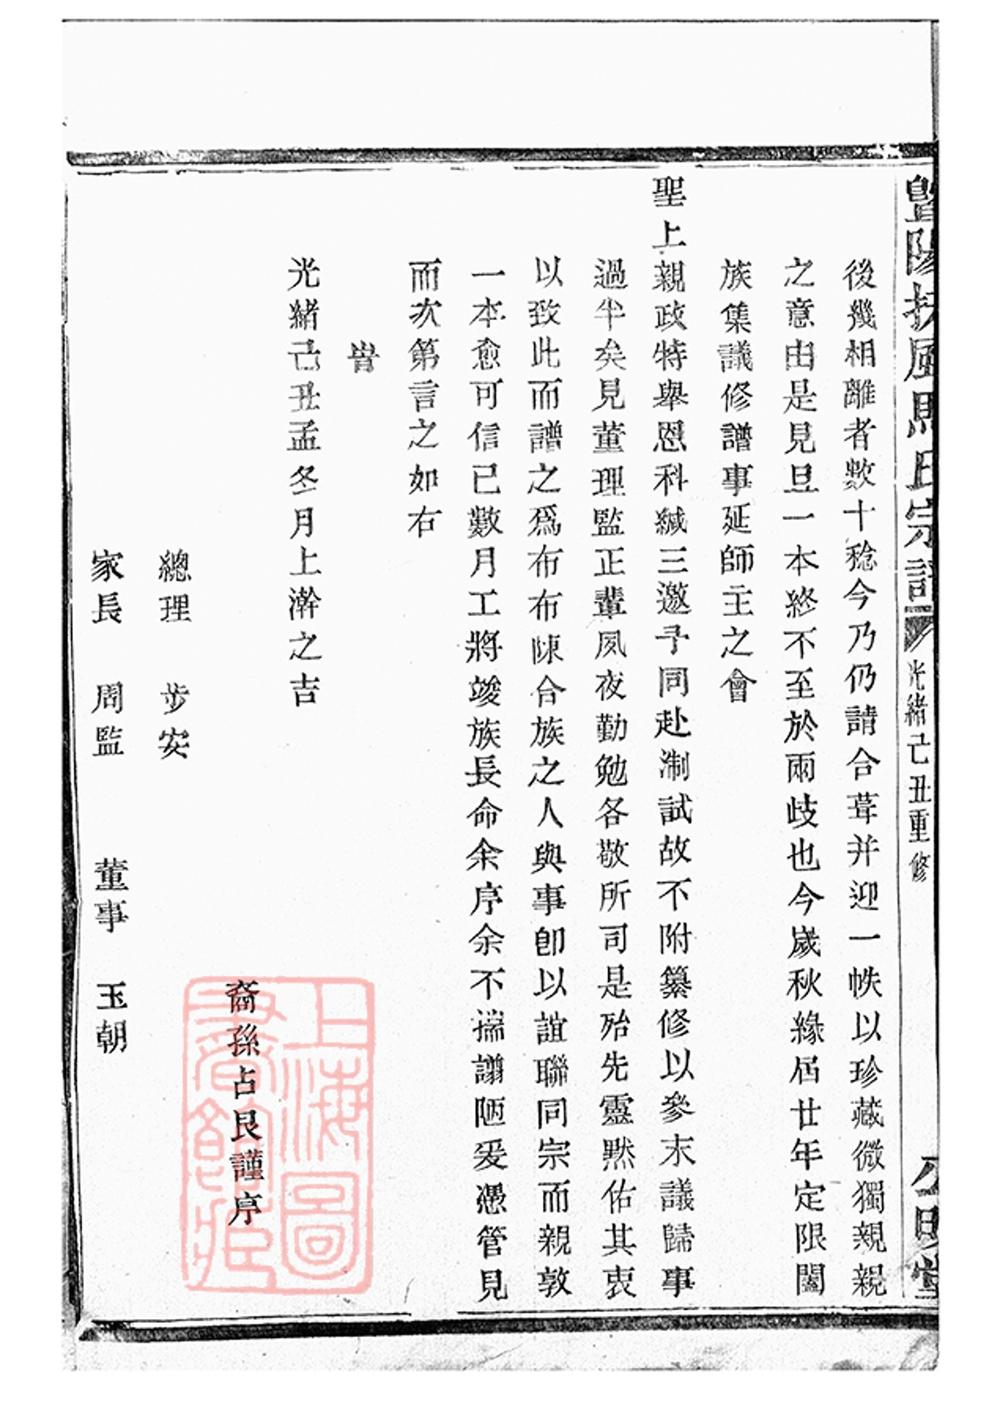 暨陽扶風馬氏宗譜 光緒己丑重修 公明堂
後幾相離者數十稔今乃仍請合葺并迎一帙以珍藏微獨親親
之意由是見且一本終不至於兩歧也今歲秋緣屆廿年定限闔
族集議修譜事延師主之會
聖上親政特舉恩科緘三邀予同赴淛試故不附纂修以參末議歸事
過半矣見董理監正輩夙夜勤勉各敬所司是殆先靈默佑其衷
以致此而譜之爲布布陳合族之人與事卽以誼聯同宗而親敦
一本愈可信已數月工將竣族長命余序余不揣譾陋爰慿管見
而次第言之如右
旹
光緒己丑孟冬月上澣之吉
裔孫占艮謹序
總理 步安
家長 周監 董事 玉朝
上海圖書館藏